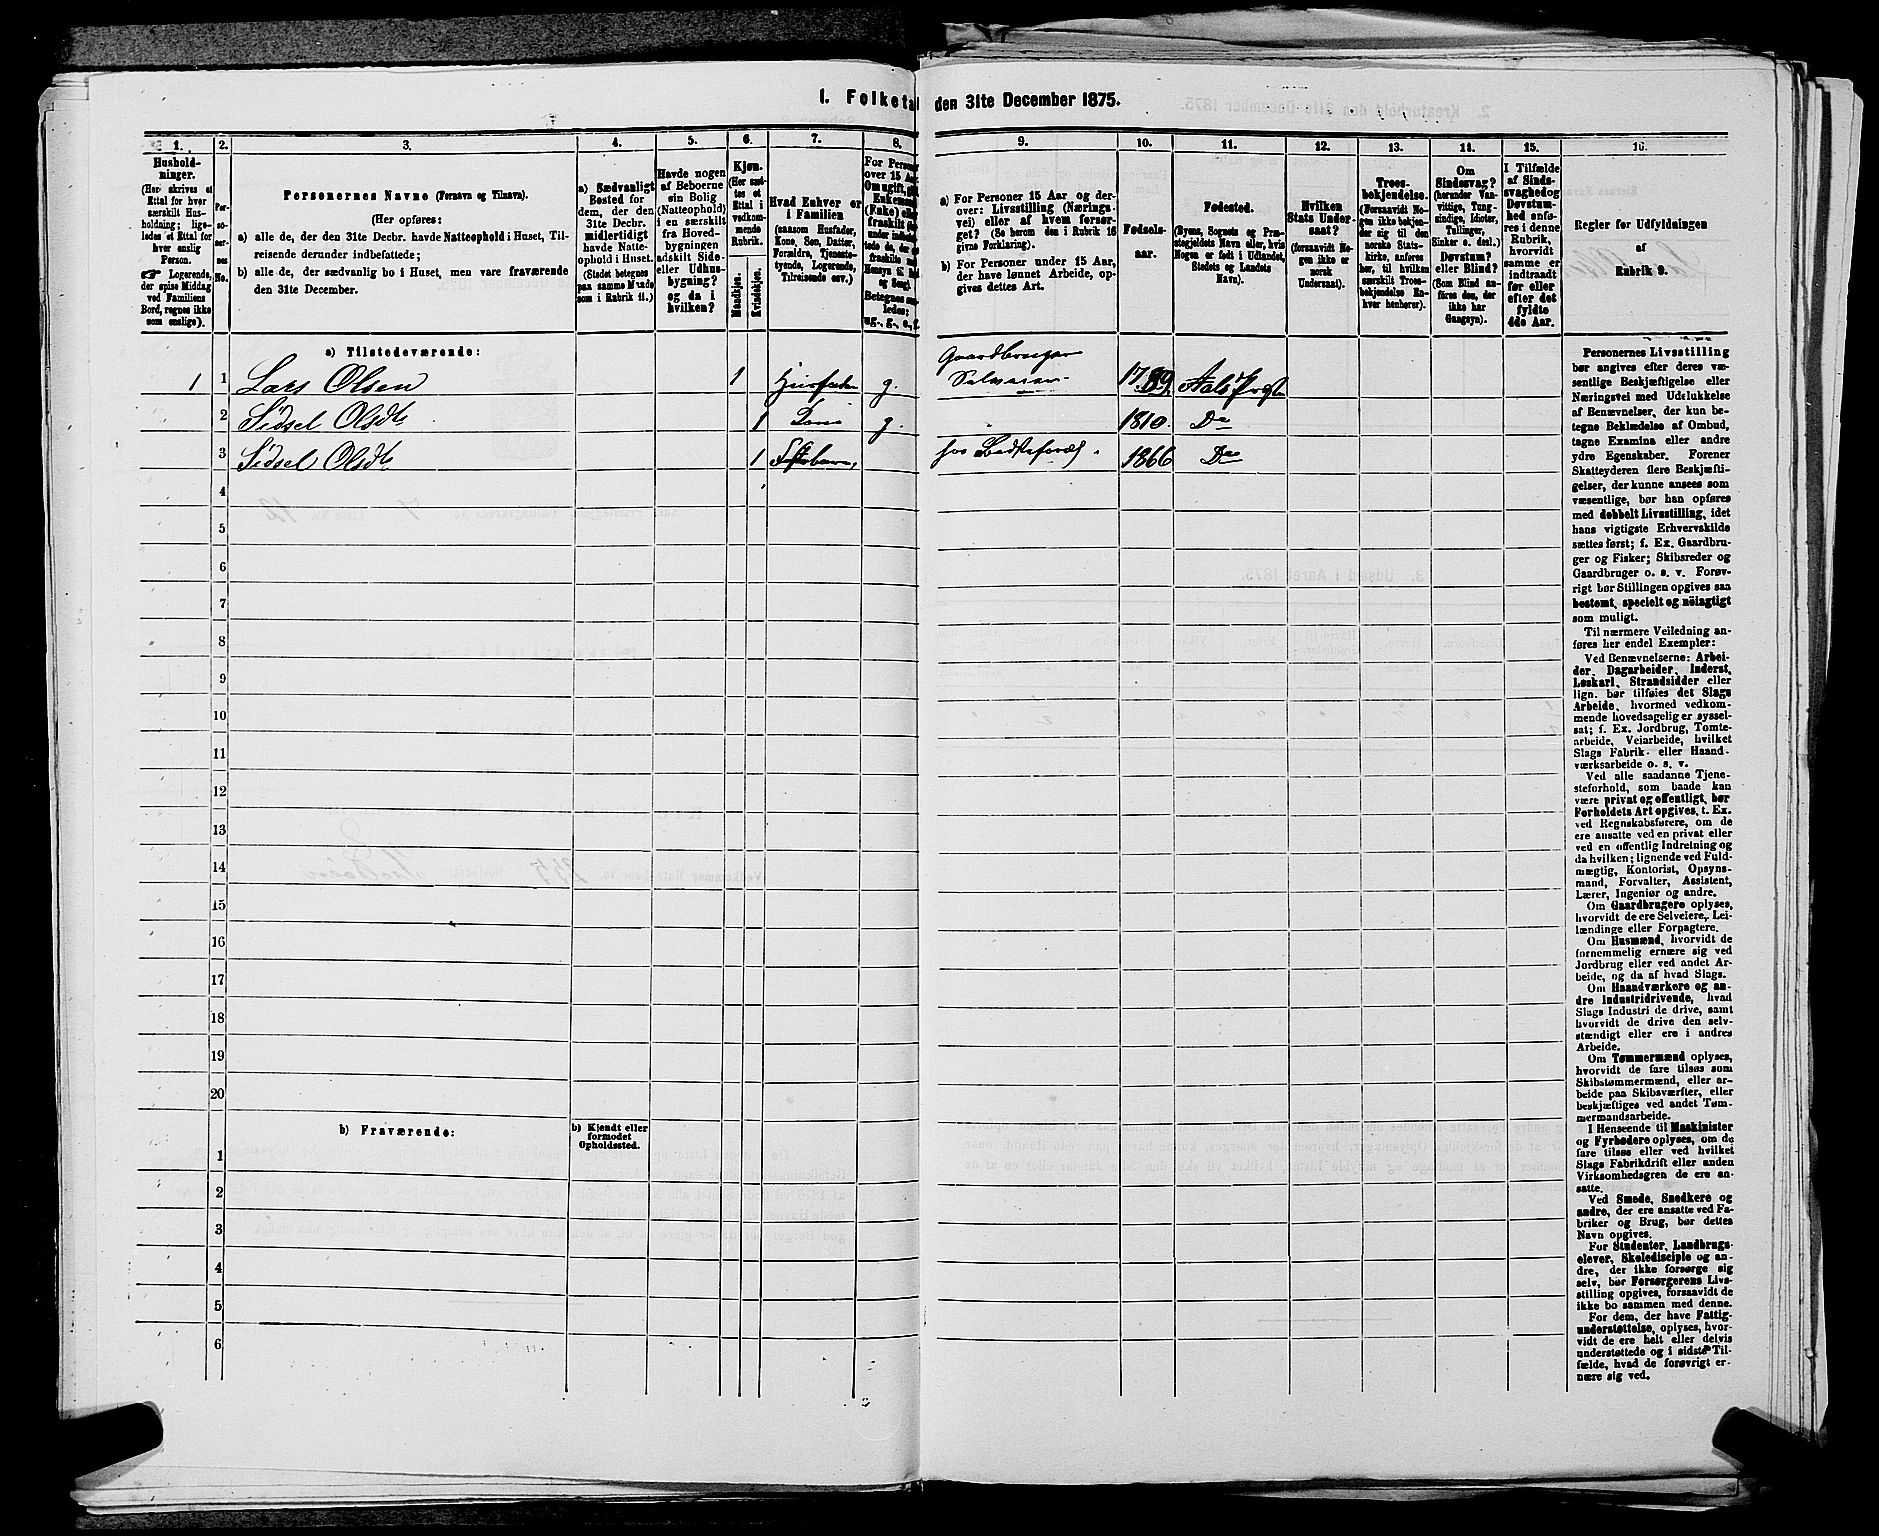 1. Folketal den 31te December 1875.
1. 2. 3. 4. 5. 6. 7. 8. 9. 10. 11. 12. 13. 14. 15. 16.
Hushold-
ninger.
(Her skrives et
Ettal for hver
særskilt Hus-
holdning; lige-
ledes et Ettal for
hver enslig
Person.
☞ Logerende,
der spise Middag
ved Familiens
Bord, regnes ikke
som enslige).
Per-
so-
ner-
nes
No.
Personernes Navne (Fornavn og Tilnavn).
(Her opføres:
a) alle de, der den 31te Decbr. havde Natteophold i Huset, Til-
reisende derunder indbefattede;
b) alle de, der sædvanlig bo i Huset, men vare fraværende
den 31te December.
a) Sædvanligt
Bosted for
dem, der den
31te Decbr.
midlertidigt
havde Natte-
ophold i Huset.
(Stedet betegnes
paa samme Maade
som i Rubrik 11.)
Havde nogen
af Beboerne
sin Bolig
(Natteophold)
i en særskilt
fra Hoved-
bygningen
adskilt Side-
eller Udhus-
bygning?
og da i
hvilken?
Kjøn.
(Her sæt-
tes et
Ettal i
vedkom-
mende
Rubrik.
Mandkjøn.
Kvindekjøn.
Hvad Enhver er
i Familien
(saasom Husfader,
Kone, Søn, Datter,
Forældre, Tjeneste-
tyende, Logerende,
Tilreisende osv.)
For Personer
over 15 Aar:
Om ugift, gift,
Enkemand
a) For Personer 15 Aar og der-
over: Livsstilling (Nærings-
vei) eller af hvem forsør-
get? (Se herom den i Rubrik 16
givne Forklaring).
b) For Personer under 15 Aar,
der have lønnet Arbeide, op-
gives dettes Art.
Fødsels-
aar.
Fødested.
(Byens, Sognets og Præ-
stegjeldets Navn eller, hvis
Nogen er født i Udlandet,
Stedets og Landets
Navn).
Hvilken
Stats Under-
saat?
(forsaavidt No-
gen ikke er
norsk
Undersaat).
Troes-
bekjendelse.
(Forsaavidt Nogen
ikke bekjen-
der sig til den
norske Stats-
kirke, anføres
her, til hvilken
særskilt Troes-
bekjendelse En-
hver henhører).
Om
Sindssvag?
(herunder Van-
vittige, Tung-
sindige, Idioter,
Tullinger,
Sinker o. desl.)
Døvstum?
eller Blind?
(Som Blind an-
føres den, der
ikke har
Gangsyn).
I Tilfælde
af Sinds-
svaghed og
Døvstum-
hed anfø-
res i denne
Rubrik,
hvorvidt
samme er
indtraadt
før eller
efter det
fyldte
4de Aar.
Regler for Udfyldningen
af
Rubrik 9.
a) Tilstedeværende:
1 1 Lars Olsen 1 Husfader g. Gaardbruger
Selveier 1789 Aals Præstg
2 Sidsel Olsdtr 1 Kone g. 1810. Do
3 Sidsel Olsdtr 1 hos Bedsteforæld. 1866 Do
4
5
6
7
8
9
10
11
12
13
14
15
16
17
18
19
20
b) Fraværende:
b) Kjendt eller
formodet
Opholdssted.
1
2
3
4
5
6
Personernes Livsstilling
bør angives efter deres væ-
sentlige Beskjæftigelse eller
Næringsvei med Udelukkelse
af Benævnelser, der kun be-
tegne Beklædelse af Ombud,
tagne Examina eller andre
ydre Egenskaber. Forener
Skatteyderen flere Beskjæfti-
gelser, der kunne ansees som
væsentlige, bør han opføres
med dobbelt Livsstilling, idet
hans vigtigste Erhvervskilde
sættes først; f. Ex. Gaardbru-
ger og Fisker; Skibsreder og
Gaardbruger o. s. v. Forøv-
rigt bør Stillingen opgives saa
bestemt, specielt og nøiagtigt
som muligt.
Til nærmere Veiledning an-
føres her endel Exempler:
Ved Benævnelserne: Arbei-
der, Dagarbeider, Inderst,
Løskarl, Strandsidder eller
lign. bør tilføies det Slags
Arbeide, hvormed vedkom-
mende hovedsagelig er syssel-
sat; f. Ex. Jordbrug, Tomte-
arbeide, Veiarbeide, hvilket
Slags Fabrik- eller Haand-
værksarbeide o. s. v.
Ved alle saadanne Tjene-
steforhold, som baade kan
være privat og offentligt, bør
Forholdets Art opgives, t. Ex.
ved Regnskabsførere, om de
ere ansatte ved en privat eller
ved en offentlig Indretning og
da hvilken; lignende ved Fuld-
mægtig, Kontorist, Opsyns-
mand, Forvalter, Assistent,
Lærer, Ingeniør og andre.
Om Gaardbrugere oplyses,
hvorvidt de ere Selveiere, Lei-
lændinge eller Forpagtere.
Om Husmænd, hvorvidt de
fornemmelig ernære sig ved
Jordbrug eller ved andet Ar-
beide, og da af hvad Slags.
Om Haandværkere og an-
dre Industridrivende, hvad
Slags Industri de drive, samt
hvorvidt de drive den selv-
stændigt eller ere i andres
Arbeide.
Om Tømmermænd oplyses,
hvorvidt de fare tilsøs som
Skibstømmermænd, eller ar-
beide paa Skibsværfter, eller
beskjæftiges ved andet Tøm-
mermandsarbeide.
I Henseende til Maskinister
og Fyrbødere oplyses, om de
fare tilsøs eller ved hvilket
Slags Fabrikdrift eller anden
Virksomhedsgren de ere an-
satte.
Ved Smede, Snedkere og
andre, der ere ansatte ved Fa-
briker og Brug, bør dettes
Navn opgives.
For Studenter, Landbrugs-
elever, Skoledisciple og an-
dre, der ikke forsørge sig
selv, bør Forsørgerens Livs-
stilling opgives, forsaavidt de
ikke bo sammen med denne.
For dem, der have Fattig-
understøttelse, oplyses, hvor-
vidt de ere helt eller delvis
understøttede og i sidste Til-
fælde, hvad de forøvrigt er-
nære sig ved.